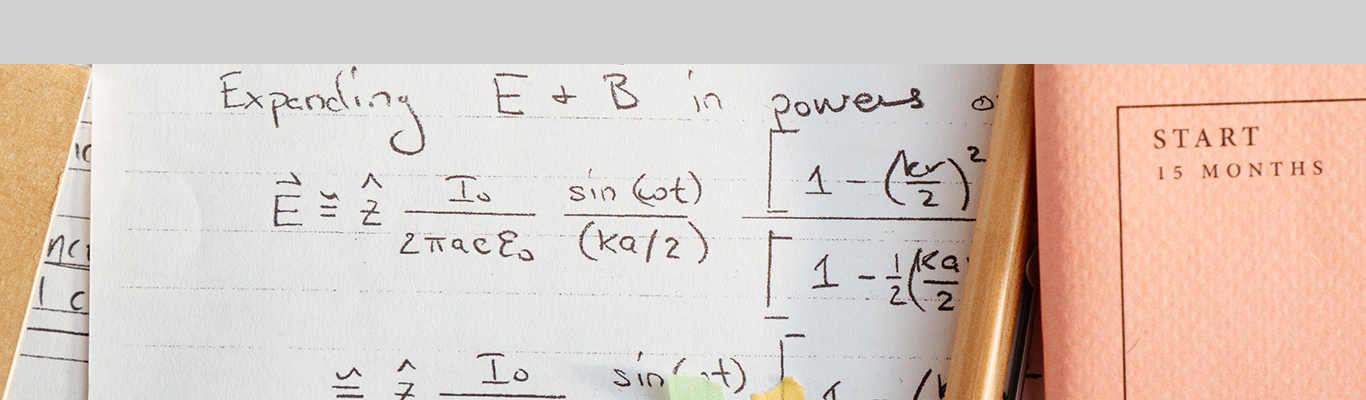 Expanding E + B in powers
E⃗ ≅ ẑ I₀/(2πacε₀) sin(ωt)/(ka/2) [1 - (kr/2)²]/[1 - ½(ka/2
≅ ẑ I₀ sin( t) [
START
15 MONTHS